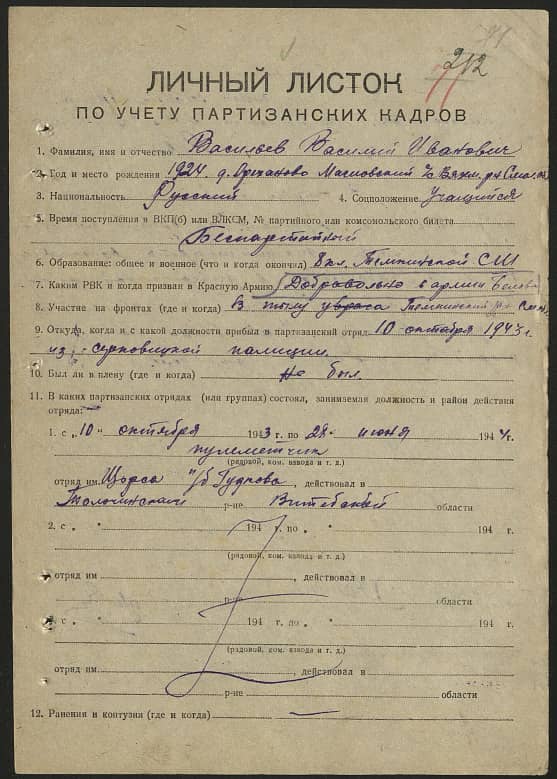 212
ЛИЧНЫЙ ЛИСТОК
ПО УЧЕТУ ПАРТИЗАНСКИХ КАДРОВ
1. Фамилия, имя и отчество Васильев Василий Иванович
2. Год и место рождения 1924 д.
3. Национальность Русский 4. Соцположение Учащийся
5. Время поступления в ВКП(б) или ВЛКСМ, № партийного или комсомольского билета
Беспартийный
6. Образование: общее и военное (что и когда окончил) 8 кл. Темкинской СШ
7. Каким РВК и когда призван в Красную Армию Добровольно в армии Белова
8. Участие на фронтах (где и когда) В тылу врага Темкинский р-н
9. Откуда, когда и с какой должности прибыл в партизанский отряд 10 октября 1943 г.
из полиции.
10. Был ли в плену (где и когда) Не был.
11. В каких партизанских отрядах (или группах) состоял, занимаемая должность и район действия
отряда:
1. с „10" октября 1943 г. по „28" июня 1944 г.
пулеметчик
(рядовой, ком. взвода и т. д.)
отряд им. Щорса п/б Гудкова, действовал в
Толочинском р-не Витебской области
2. с „ " 194 г. по „ " 194 г.
(рядовой, ком. взвода и т. д.)
отряд им , действовал в
р-не области
3. с „ " 194 г. по „ " 194 г.
(рядовой, ком. взвода и т. д.)
отряд им. , действовал в
р-не области
12. Ранения и контузии (где и когда) —